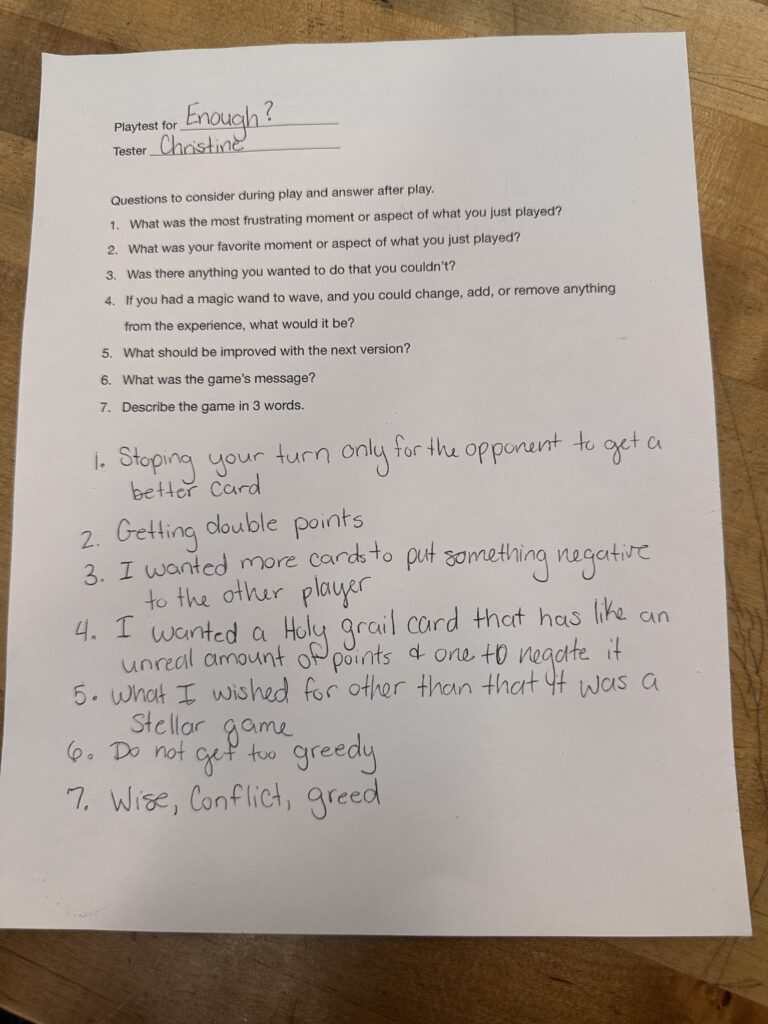 Playtest for Enough?
Tester Christine
Questions to consider during play and answer after play.
1. What was the most frustrating moment or aspect of what you just played?
2. What was your favorite moment or aspect of what you just played?
3. Was there anything you wanted to do that you couldn't?
4. If you had a magic wand to wave, and you could change, add, or remove anything
from the experience, what would it be?
5. What should be improved with the next version?
6. What was the game's message?
7. Describe the game in 3 words.
1. Stoping your turn only for the opponent to get a
better card
2. Getting double points
3. I wanted more cards to put something negative
to the other player
4. I wanted a Holy grail card that has like an
unreal amount of points & one to negate it
5. What I wished for other than that it was a
Stellar game
6. Do not get too greedy
7. Wise, Conflict, greed